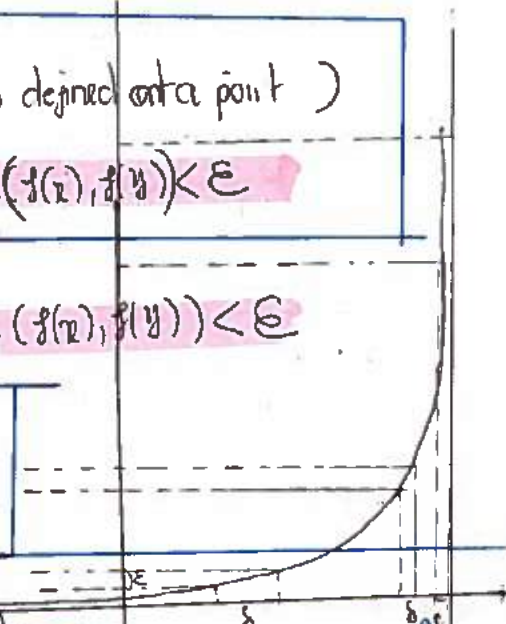 defined at a point )
(f(x), f(y)) < ε
(f(x), f(y)) < ε
ε
δ